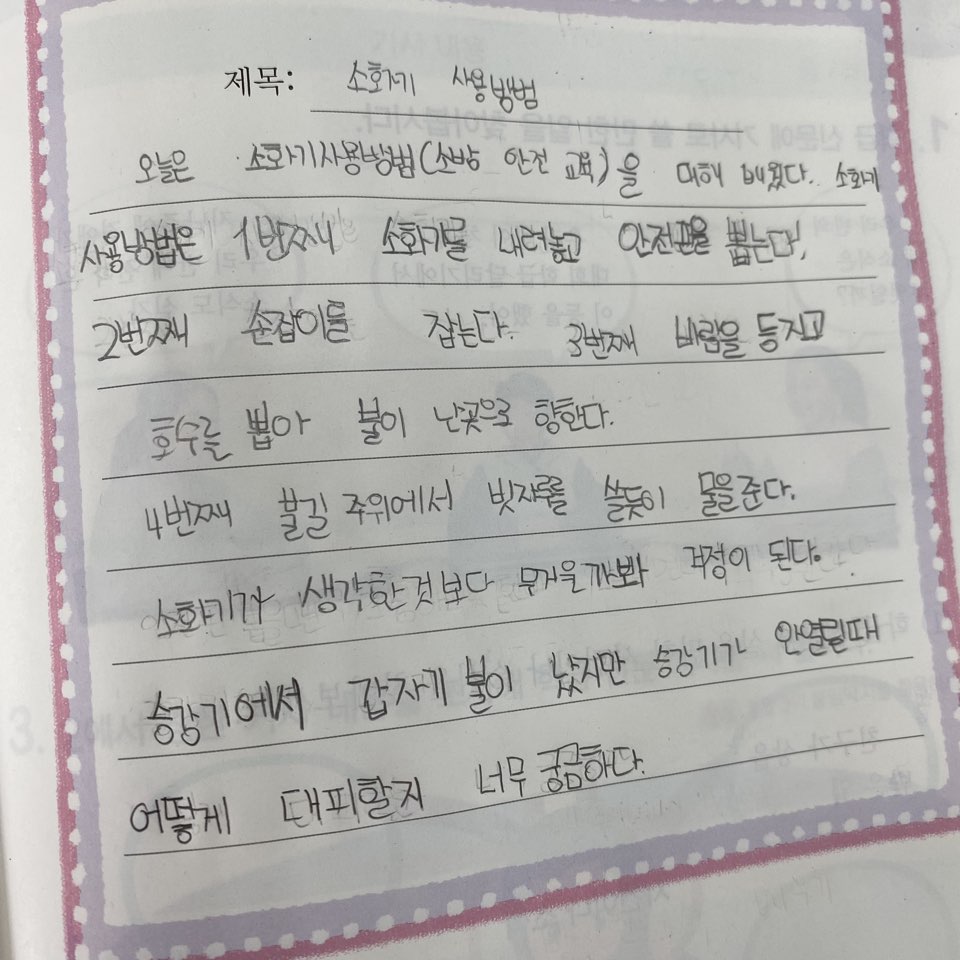 제목: 소화기 사용방법
오늘은 소화기사용방법(소방 안전 교육)을 대해 배웠다. 소화기
사용방법은 1번째 소화기를 내려놓고 안전핀을 뽑는다,
2번째 손잡이를 잡는다. 3번째 바람을 등지고
호수를 뽑아 불이 난곳으로 향한다.
4번째 불길 주위에서 빗자루를 쓸듯이 물을준다.
소화기가 생각한것보다 무거울까봐 걱정이 된다.
승강기에서 갑자기 불이 났지만 승강기가 안열릴때
어떻게 대피할지 너무 궁금하다.